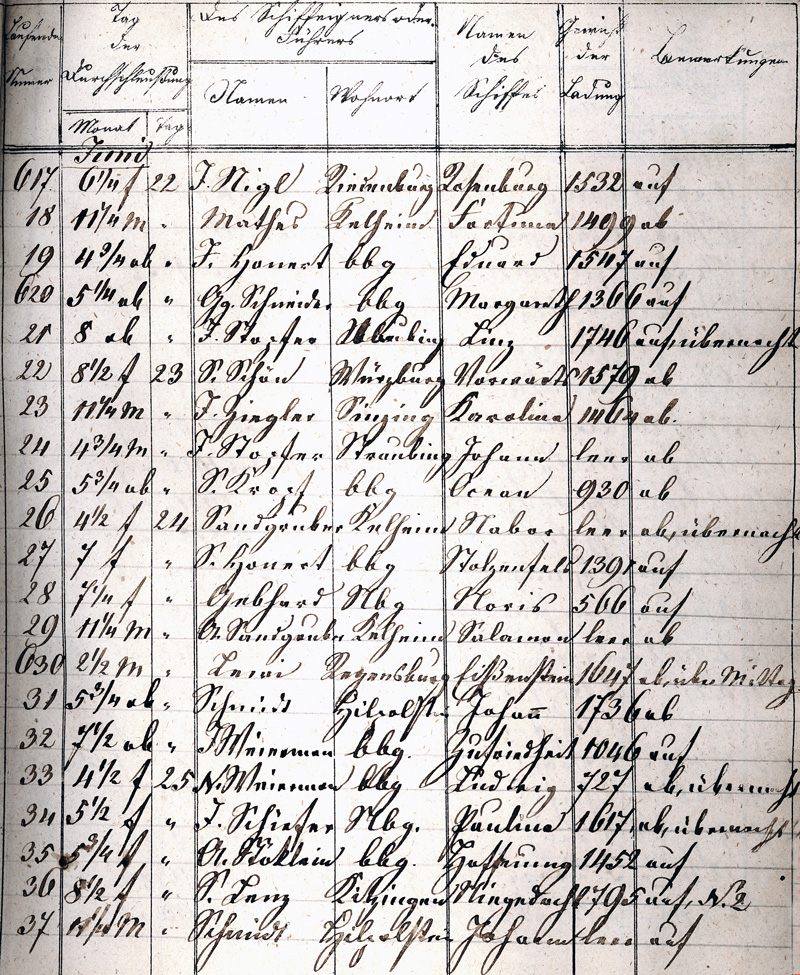 Laufende Numer | Tag der Durchschleußung | Des Schiffeigners oder Führers | Namen des Schiffes | Gewicht der Ladung | Bemerkungen
Monat | Tag | Namen | Wohnort
Juni
617 6 1/4 f 22 J. Nigl Riedenburg Rosenburg 1532 auf
18 11 1/4 M " Mathes Kelheim Fortuna 1499 ab
19 4 3/4 ab " J. Honert bbg Eduard 1547 auf
620 5 1/4 ab " Gg. Schneider bbg Margareth 1366 auf
21 8 ab " J. Stopfer Linz 1746 auf, übernacht
22 8 1/2 f 23 S. Schön Würzburg Vorwärts 1579 ab
23 11 1/4 M " J. Ziegler Sinzing Karolina 1464 ab.
24 4 3/4 M " J. Stopfer Straubing Johann leer ab
25 5 3/4 ab " S. Kropf bbg Ocean 930 ab
26 4 1/2 f 24 Sandgruber Kelheim Nabor leer ab, übernacht
27 7 f " S. Honert bbg Stolzenfels 1391 auf
28 7 1/4 f " Gebhard Nbg Noris 566 auf
29 11 1/4 M " A. Sandgruber Kelheim Salamon leer ab
630 2 1/2 M " Regensburg 1647 ab, über Mittag
31 5 3/4 ab " Schmidt Hilpolstein Johann 1736 ab
32 7 1/2 ab " J Weierman bbg. Zufriedheit 1046 auf
33 4 1/2 f 25 N. Weierman bbg Ludwig 727 ab, übernacht
34 5 1/2 f " J. Schiefer Nbg. Paulina 1617 ab, übernacht
35 5 3/4 f " A. Stöklein bbg. Hoffnung 1452 auf
36 8 1/2 f " S. Lenz Kitzingen Niegedacht 795 auf, N. 2
37 11 1/4 M " Schmidt Hilpolstein Johann leer auf